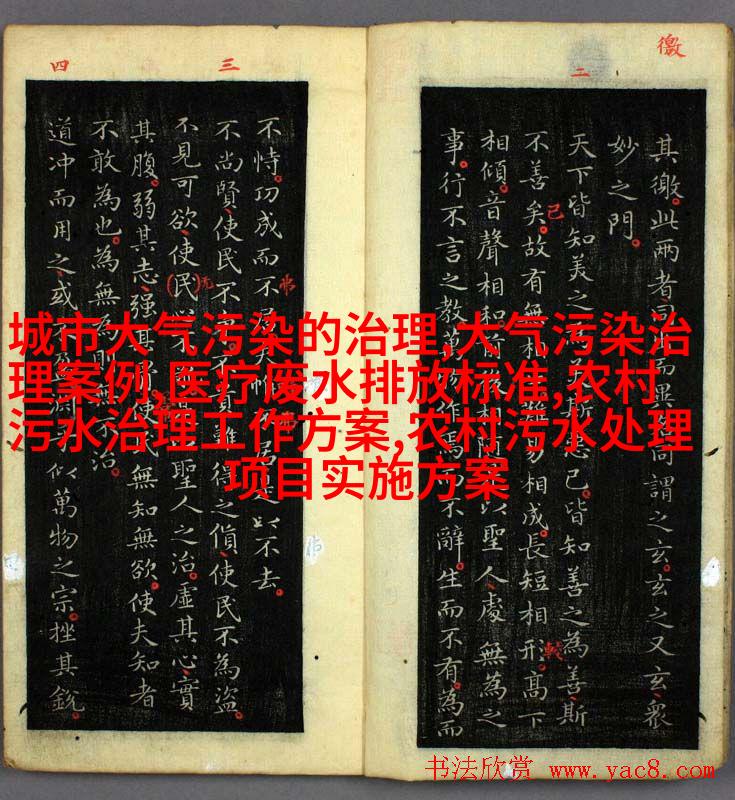 徼
二
其徼。此兩者同而異同謂之玄。玄之又玄、衆
妙之門。
天下皆知美之為斯惡已。皆知善之為善斯
不善矣。故有無相難易相成。長短相形。高下
已
較
相傾。音聲相和前相隨以聖人處無為之
事。行不言之教。萬物作焉不辭。生而不有。為而
三
四
不恃。功成而不居夫惟居是以不去。
不尚賢、使民不爭。不貴難得之貨、使民不為盜。
不見可欲、使民心不聖人之治。虛其心、實
无
其腹。弱其志、強其使民無知無欲。使夫知者
不敢為也。為無為則無不治。
道冲而用之、或不盈。淵乎似萬物之宗。挫其銳。
城市大气污染的治理,大气污染治
理案例,医疗废水排放标准,农村
污水治理工作方案,农村污水处理
项目实施方案
书法欣赏 www.yac8.com